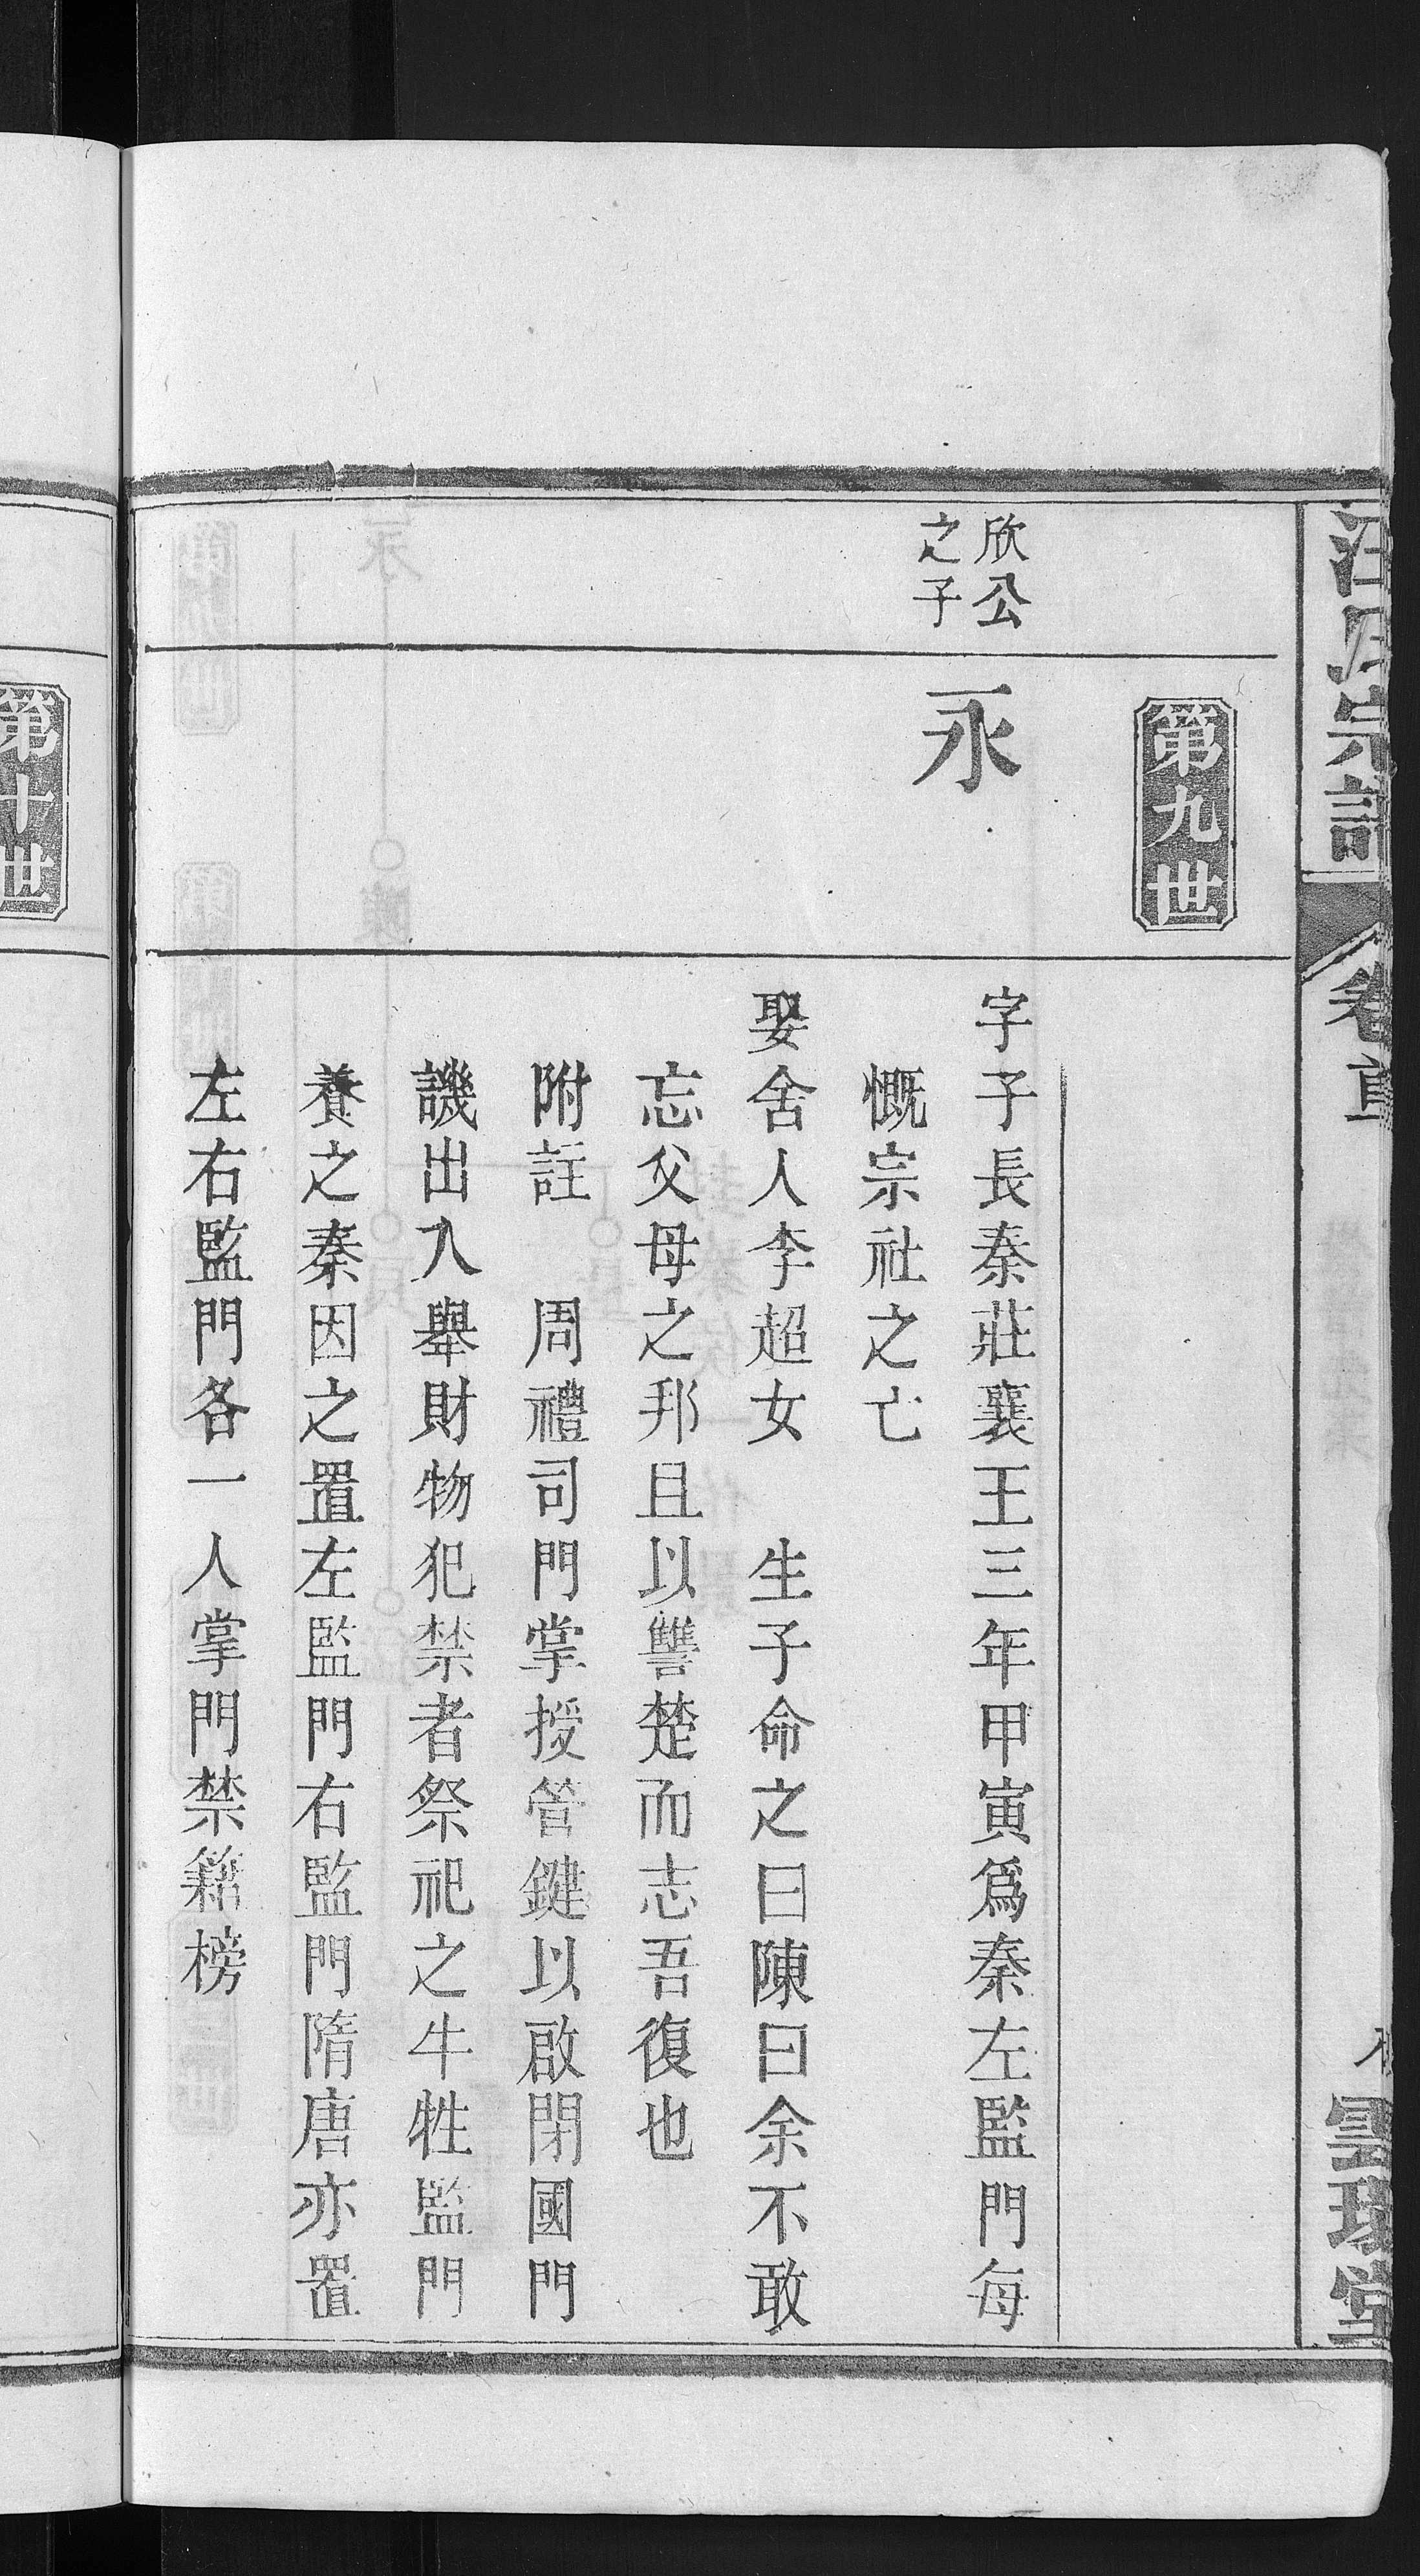 氏宗譜
卷首
堂
第九世
欣公
之子
永
字子長秦莊襄王三年甲寅爲秦左監門每
慨宗社之亡
娶舍人李超女　生子命之曰陳曰余不敢
忘父母之邦且以讐楚而志吾復也
附註　周禮司門掌授管鍵以啟閉國門
譏出入舉財物犯禁者祭祀之牛牲監門
養之秦因之置左監門右監門隋唐亦置
左右監門各一人掌門禁籍榜
第十世